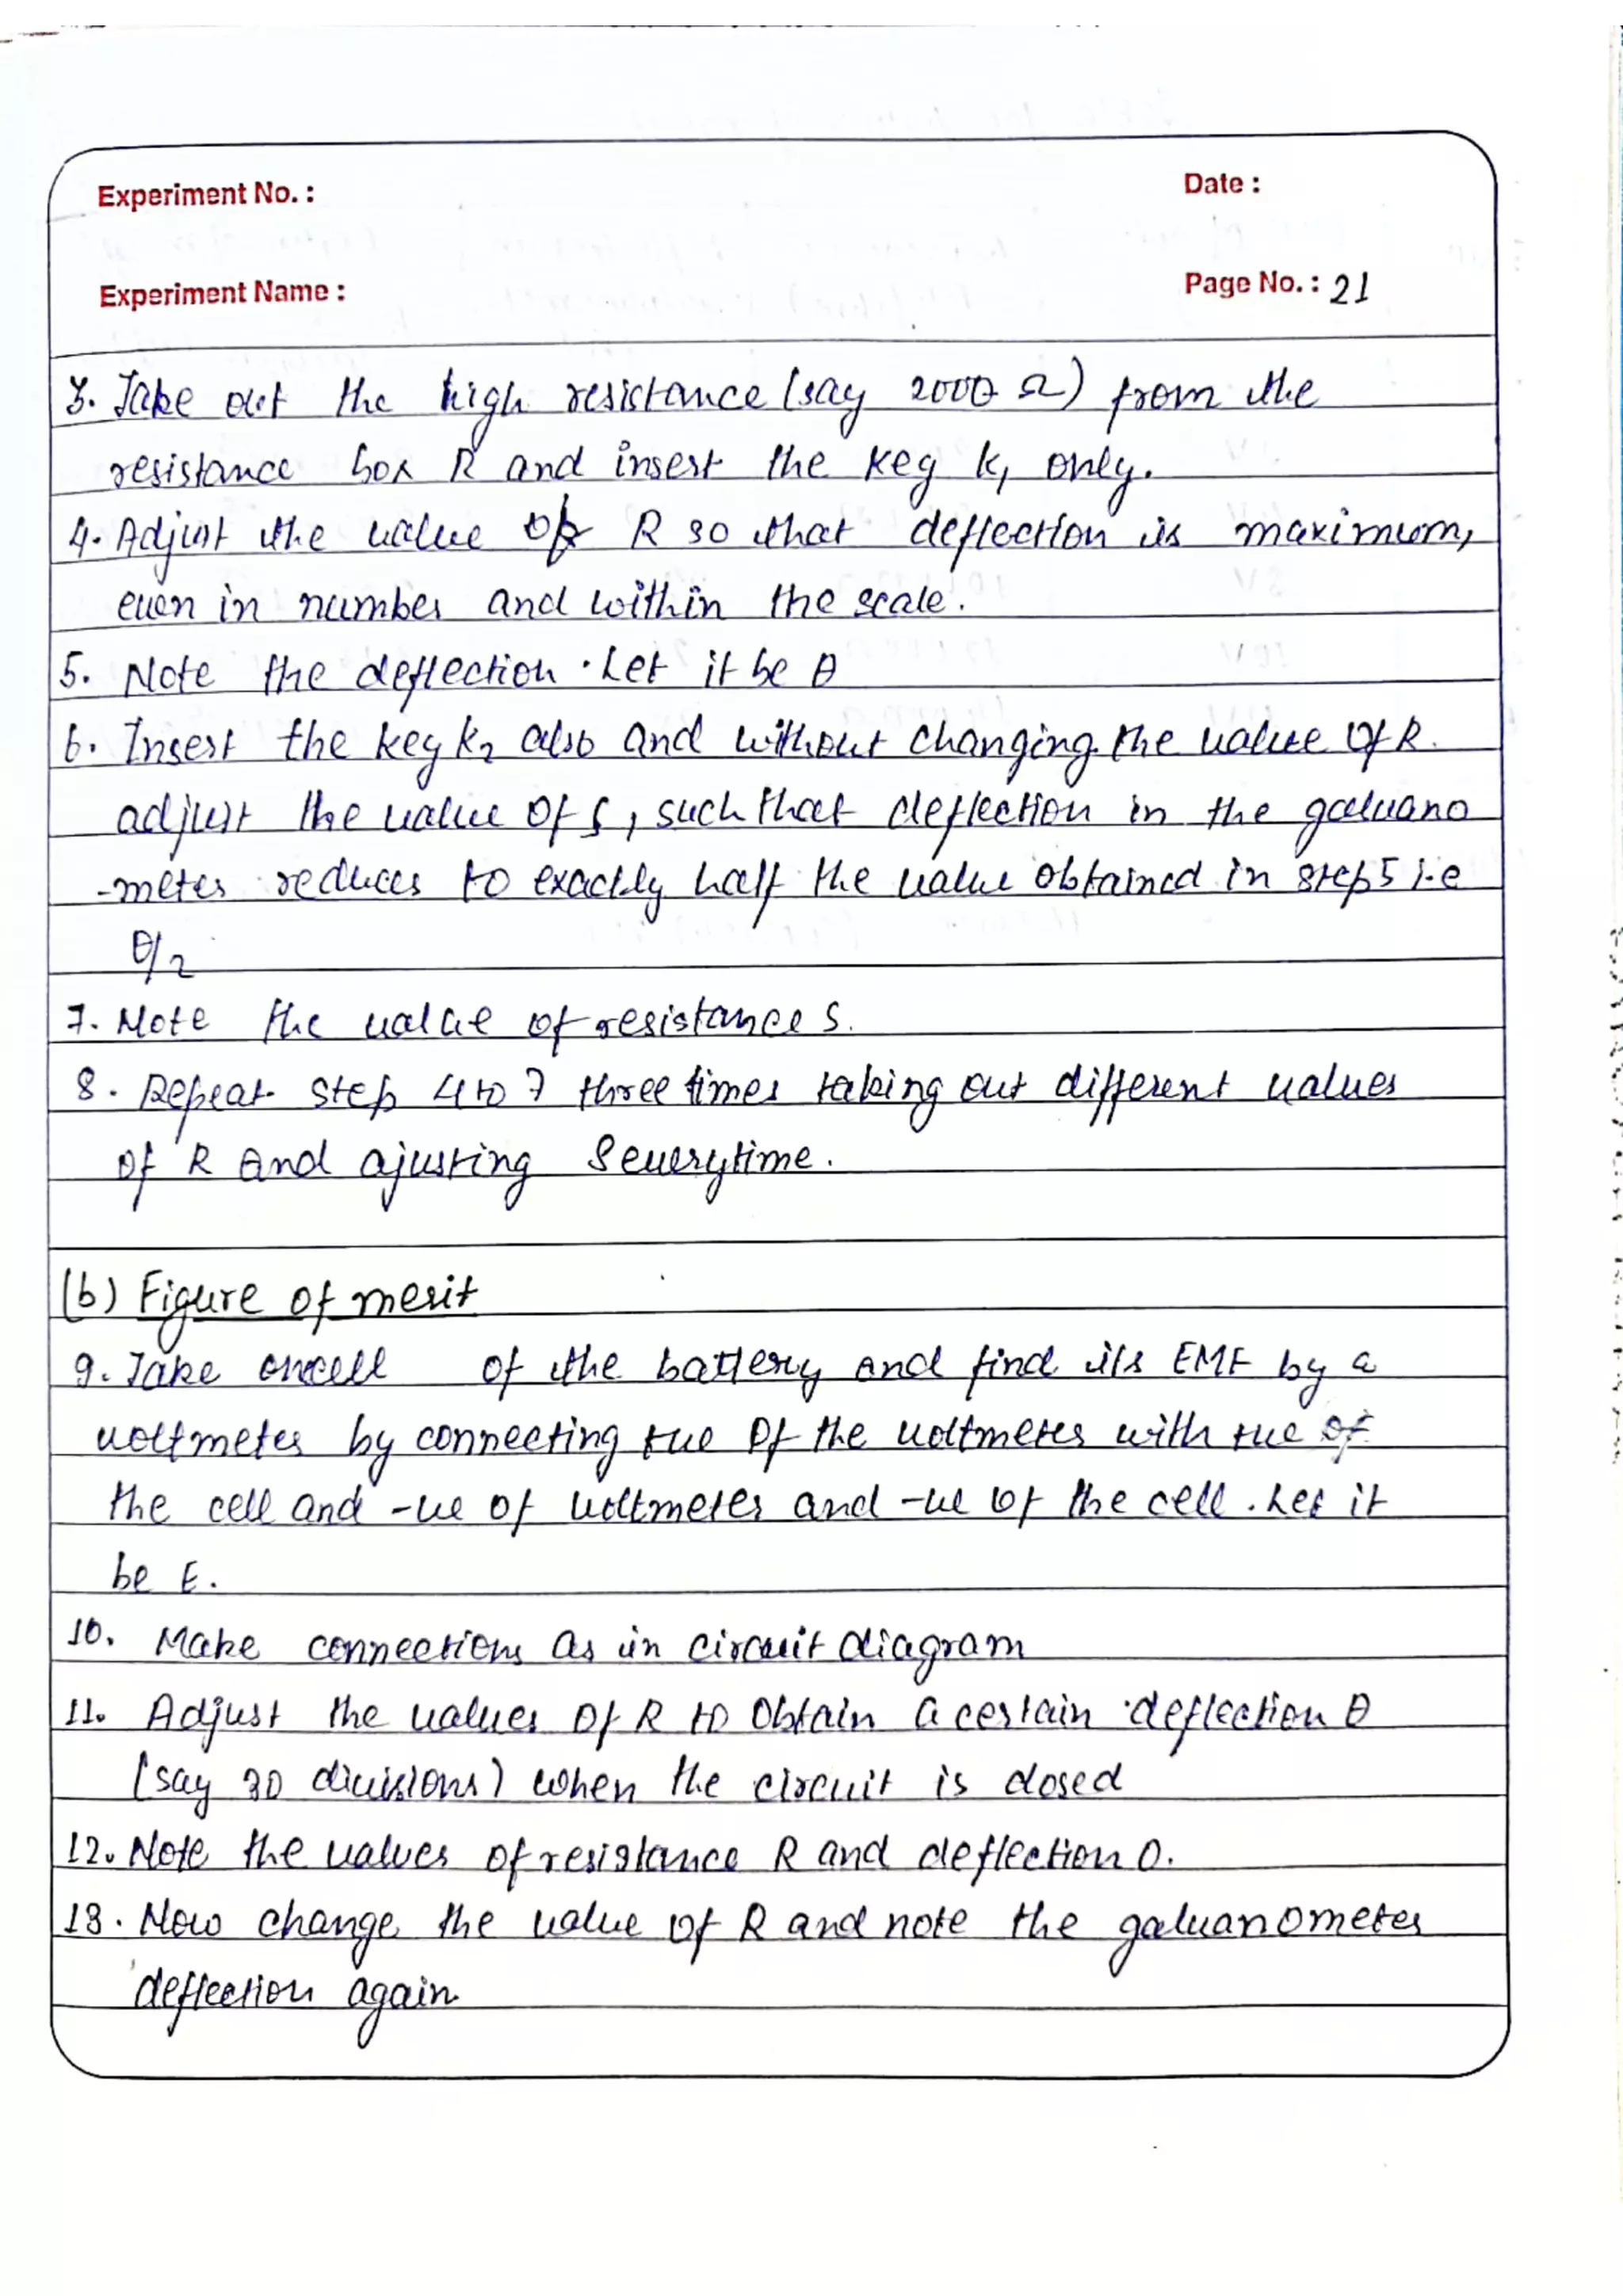 Experiment No. :
Date :
Experiment Name :
Page No. : 21
3. Take out the high resistance (say 2000 Ω) from the
resistance box R and insert the key K₁ only.
4. Adjust the value of R so that deflection is maximum,
even in number and within the scale.
5. Note the deflection. Let it be θ
6. Insert the key K₂ also and without changing the value of R.
adjust the value of S, such that deflection in the galvano
-meter reduces to exactly half the value obtained in step 5 i.e
θ/2
7. Note the value of resistance S.
8. Repeat step 4 to 7 three times taking out different values
of R and ajusting S everytime.
(b) Figure of merit
9. Take onecell of the battery and find its EMF by a
voltmeter by connecting +ve of the voltmeter with +ve of
the cell and -ve of voltmeter and -ve of the cell. Let it
be E.
10. Make connections as in circuit diagram
11. Adjust the values of R to obtain a certain deflection θ
(say 30 divisions) when the circuit is closed
12. Note the values of resistance R and deflection θ.
13. Now change the value of R and note the galvanometer
deflection again.